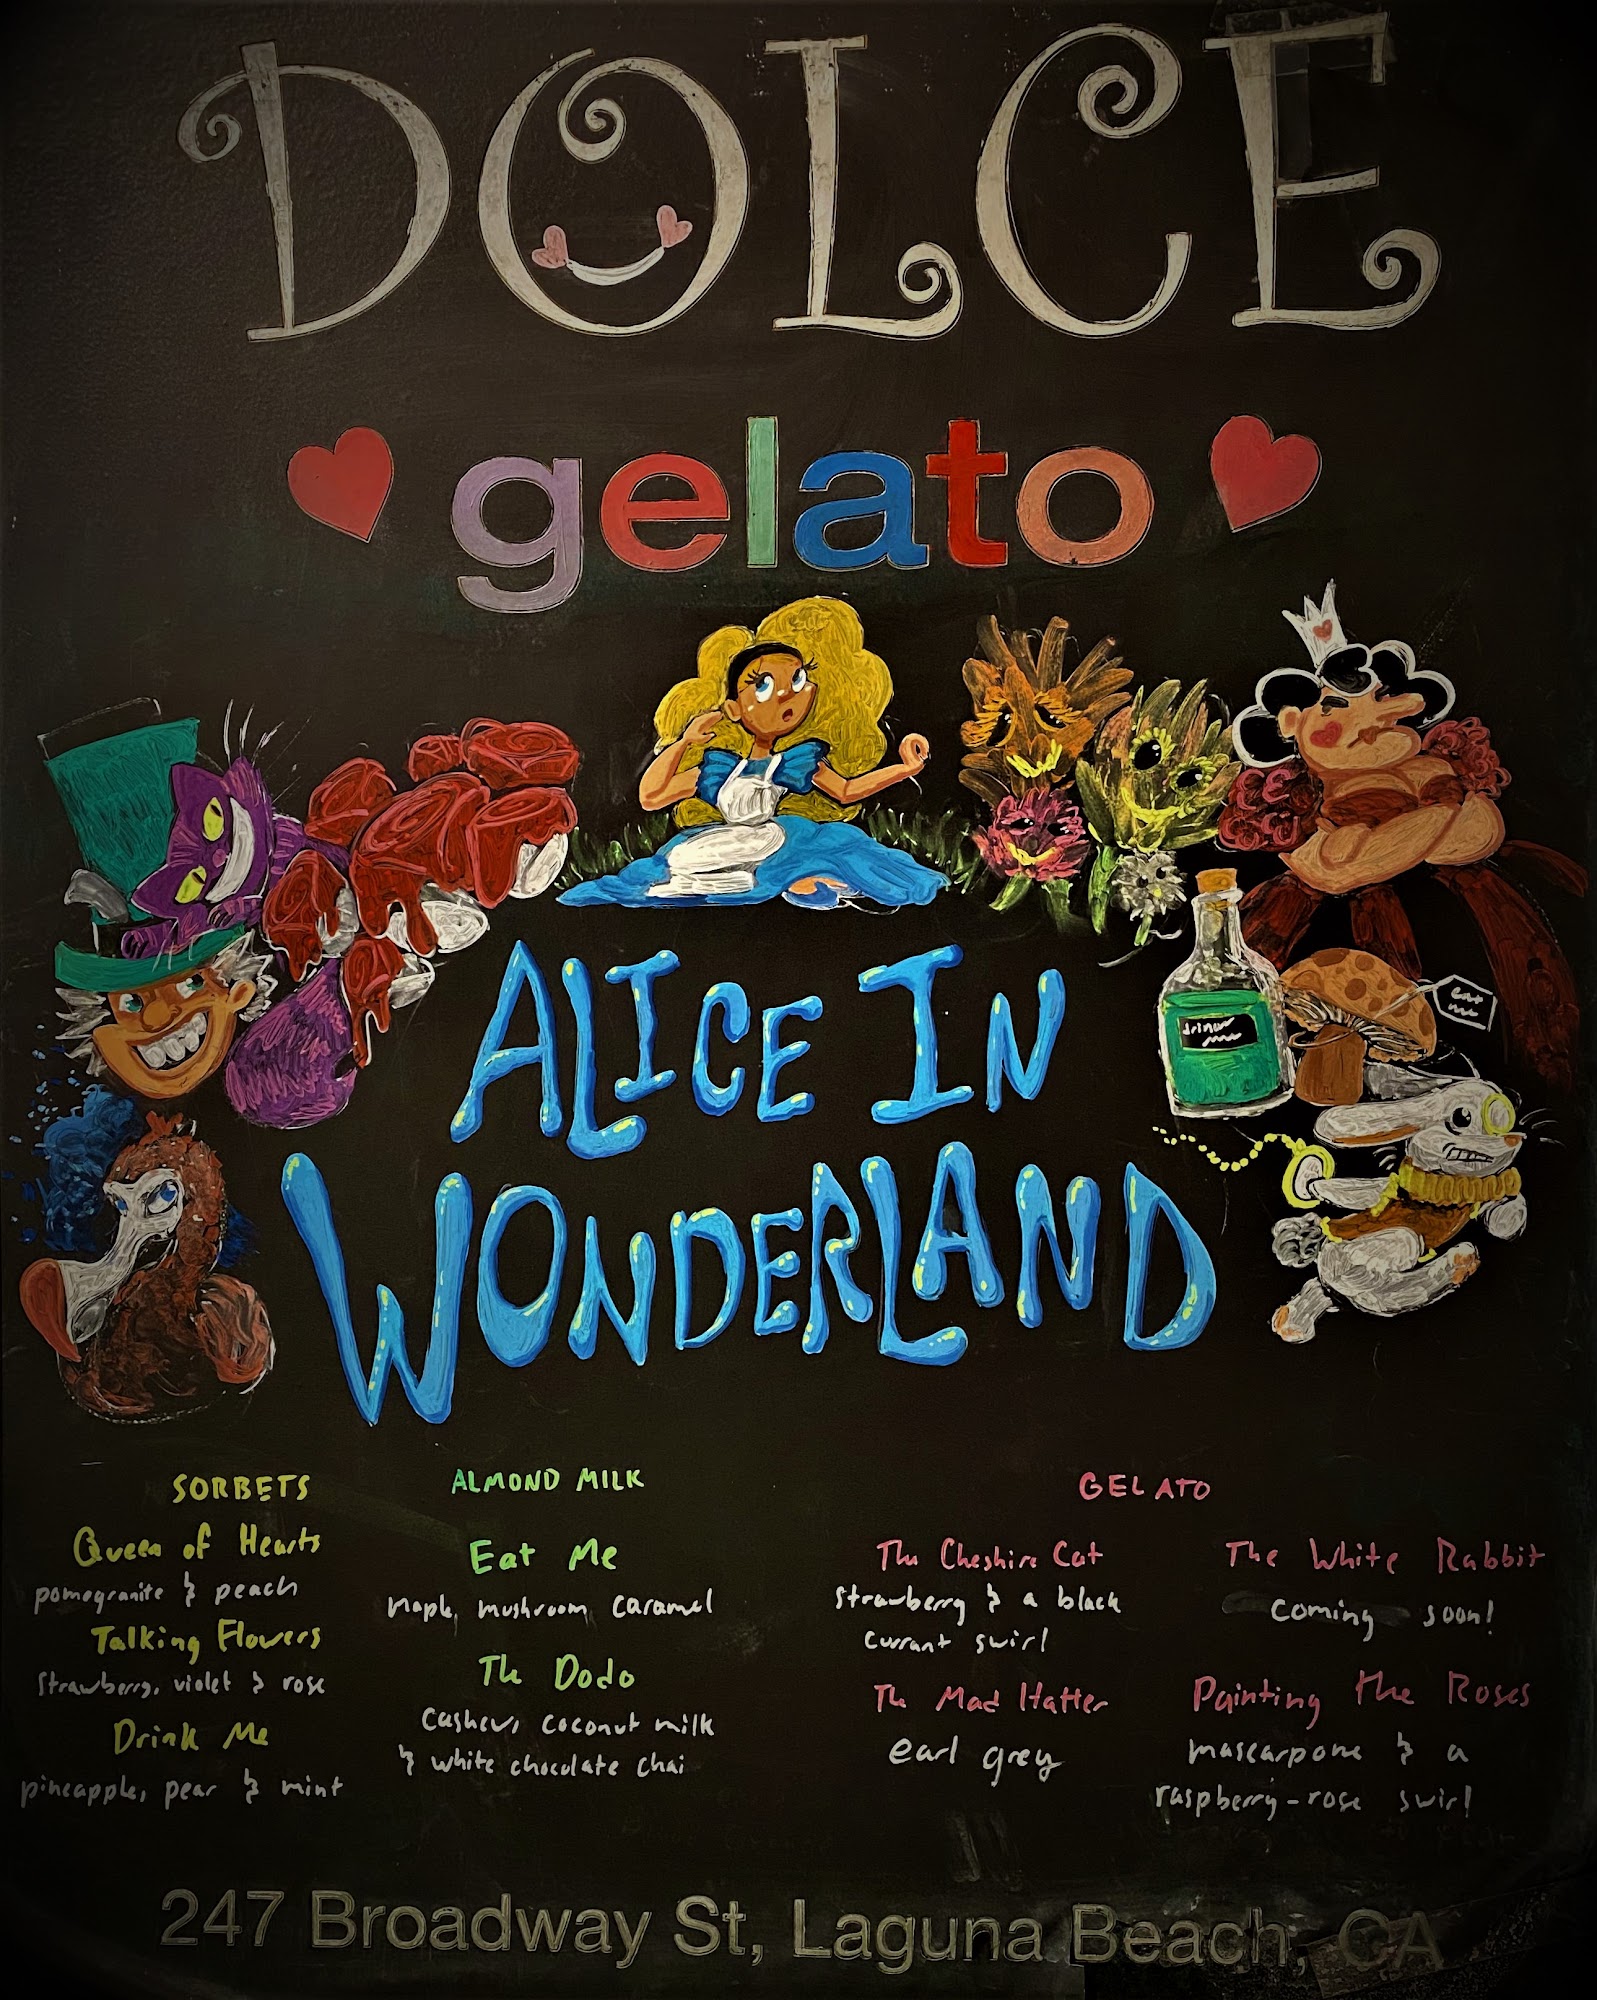 DOLCE
gelato
ALICE IN
WONDERLAND
drink
me
eat
me
SORBETS
Queen of Hearts
pomegranite & peach
Talking Flowers
strawberry, violet & rose
Drink Me
pineapple, pear & mint
ALMOND MILK
Eat Me
maple, mushroom, caramel
The Dodo
cashew, coconut milk
& white chocolate chai
GELATO
The Cheshire Cat
strawberry & a black
currant swirl
The Mad Hatter
earl grey
The White Rabbit
coming soon!
Painting the Roses
mascarpone & a
raspberry-rose swirl
247 Broadway St, Laguna Beach, CA